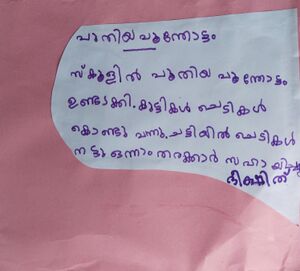 പുതിയ പൂന്തോട്ടം
സ്കൂളിൽ പുതിയ പൂന്തോട്ടം
ഉണ്ടാക്കി. കുട്ടികൾ ചെടികൾ
കൊണ്ടു വന്നു. ചട്ടിയിൽ ചെടികൾ
നട്ടു ഒന്നാം തരക്കാർ സഹായിച്ചു
ദീക്ഷിത്